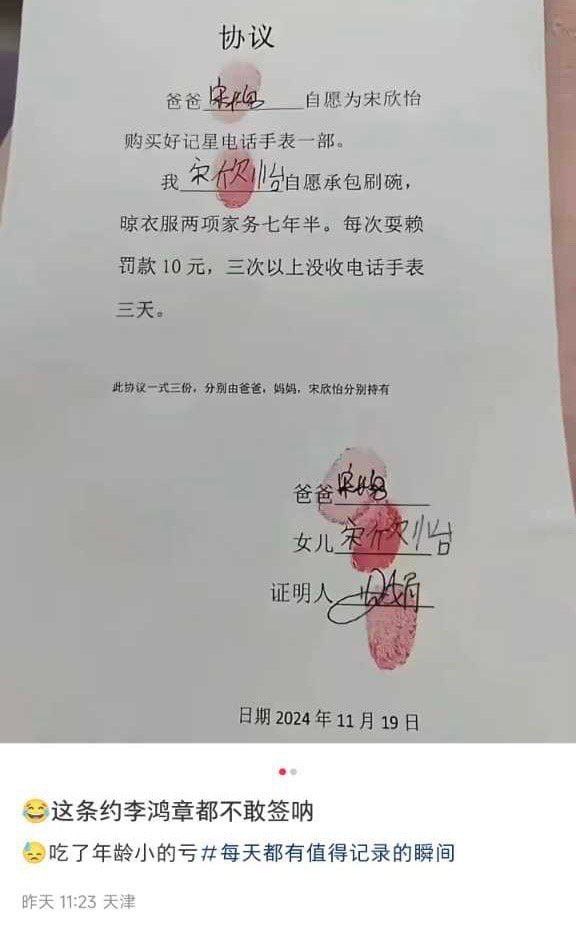 协议
爸爸 宋 自愿为宋欣怡
购买好记星电话手表一部。
我 宋欣怡 自愿承包刷碗，
晾衣服两项家务七年半。每次耍赖
罚款 10 元，三次以上没收电话手表
三天。
此协议一式三份，分别由爸爸，妈妈，宋欣怡分别持有
爸爸 宋
女儿 宋欣怡
证明人
日期 2024 年 11 月 19 日
😂这条约李鸿章都不敢签呐
😓吃了年龄小的亏#每天都有值得记录的瞬间
昨天 11:23 天津